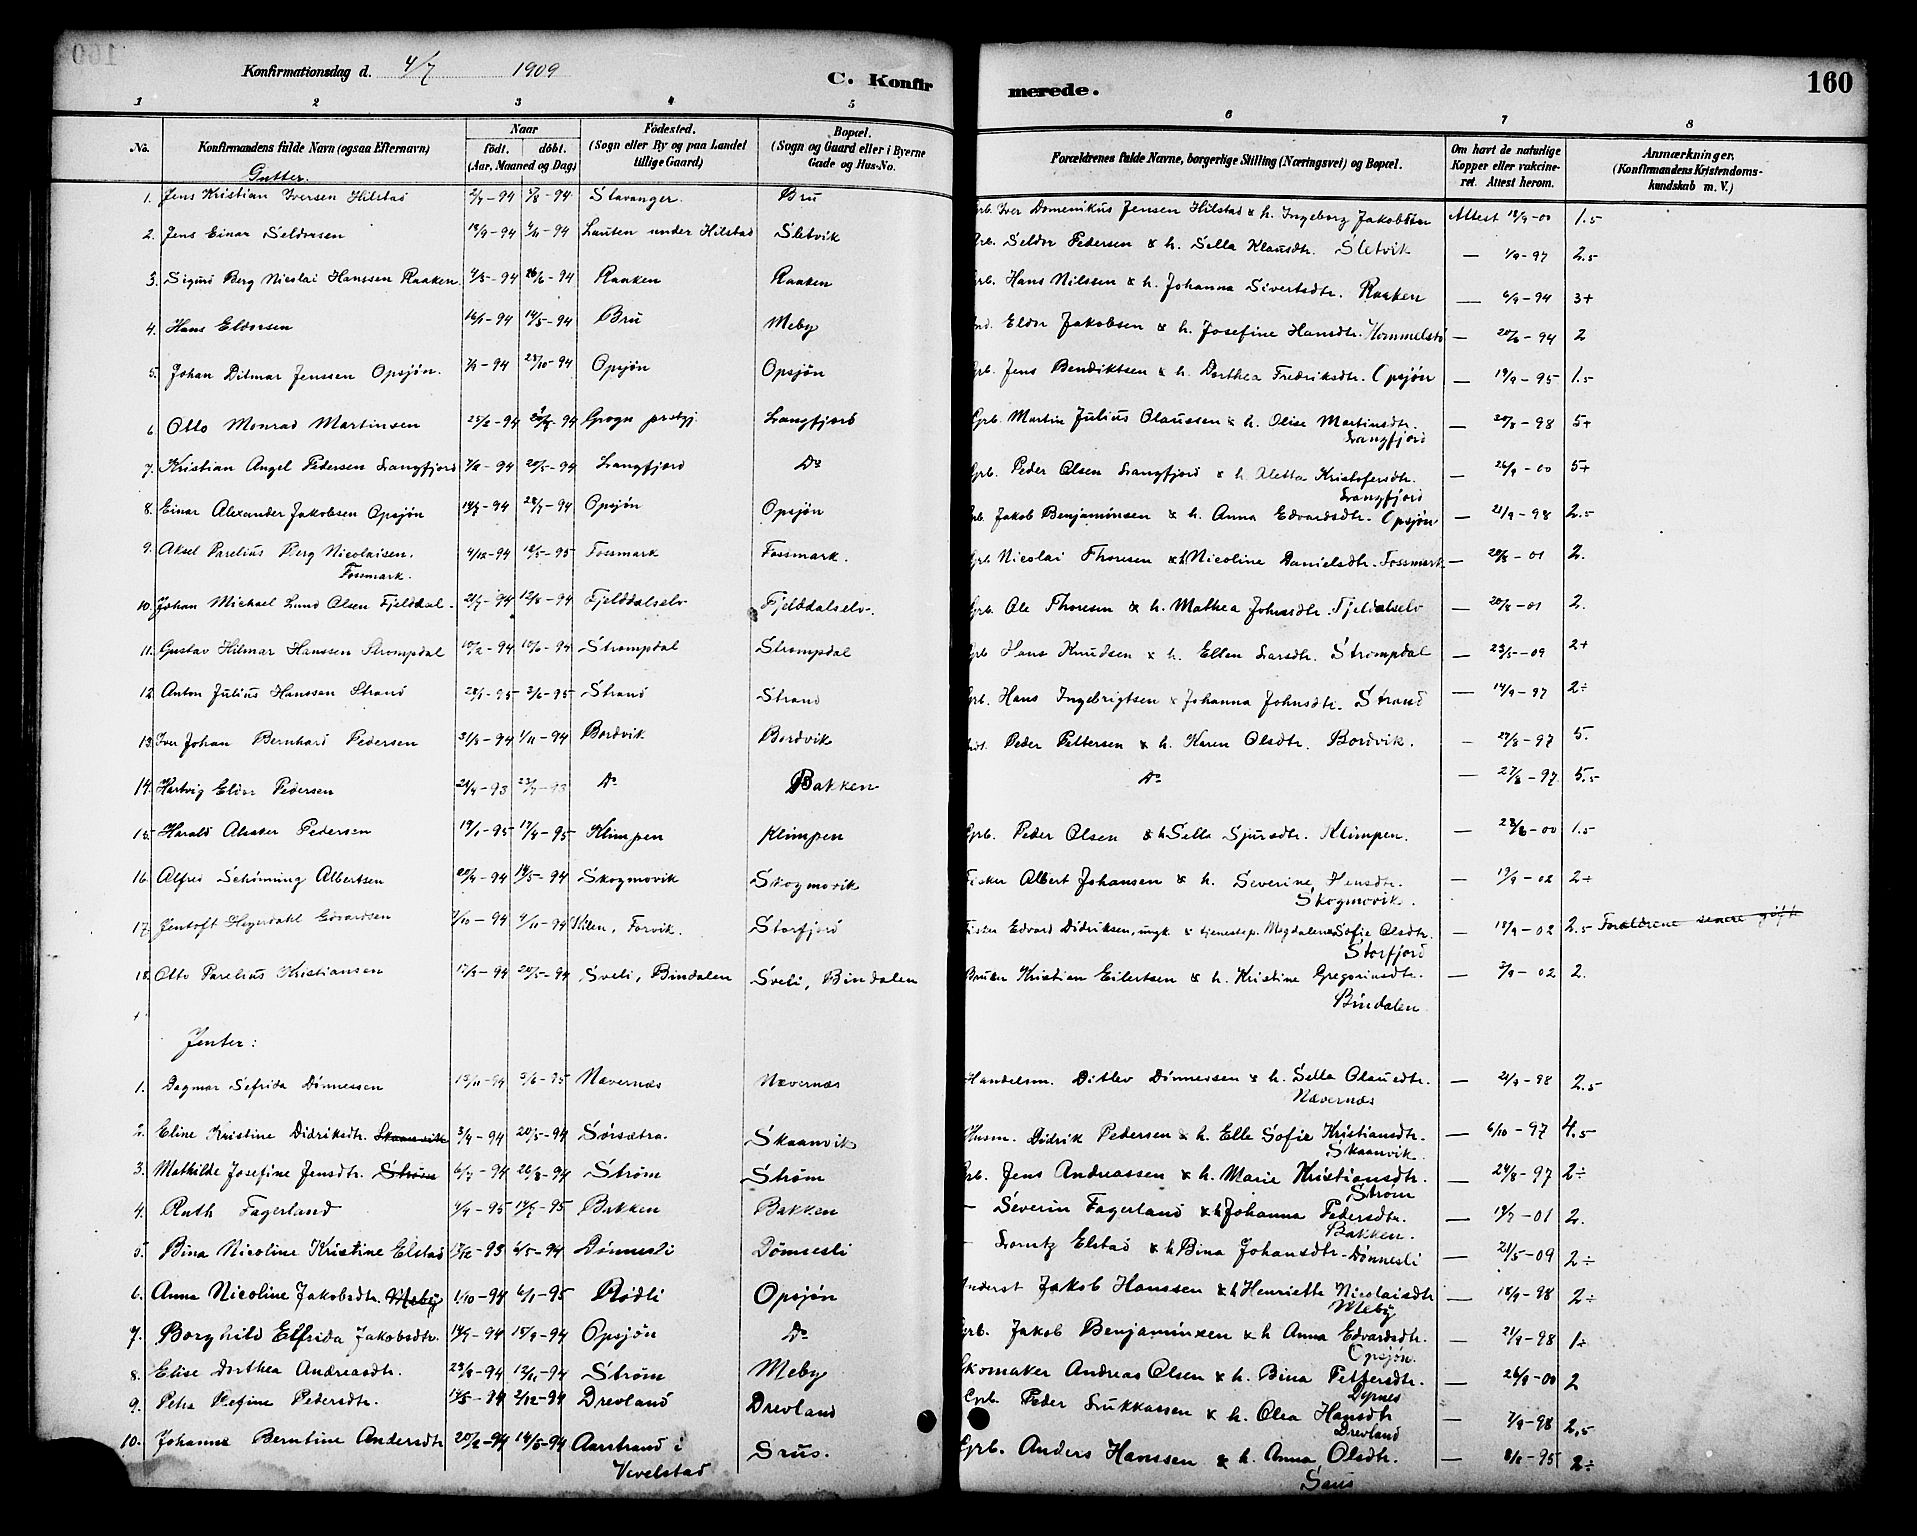 Konfirmationsdag d. 4/7 1909
C. Konfirmerede.
160
1 2 3 4 5 6 7 8
No.
Konfirmandens fulde Navn (ogsaa Efternavn)
Naar
født. døbt.
(Aar, Maaned og Dag)
Fødested.
(Sogn eller By og paa Landet
tillige Gaard)
Bopæl.
(Sogn og Gaard eller i Byerne
Gade og Hus-No.
Forældrenes fulde Navne, borgerlige Stilling (Næringsvei) og Bopæl.
Om havt de naturlige
Kopper eller vakcine-
ret. Attest herom.
Anmærkninger.
(Konfirmandens Kristendoms-
kundskab m. V.)
Gutter.
1. Jens Kristian Iversen Hilstad -94 -94 Stavanger. Bru Grb. Iver Domenikus Jensen Hilstad & h. Ingeborg Jakobsdtr Attest 18/9-00 1.5
2. Jens Einar Seldorsen -94 -94 Lauten under Hilstad Sletvik Grb. Seldor Pedersen & h. Sella Klausdtr. Sletvik — 1/9-97 2.5
3. Sigurd Berg Nicolai Hanssen Raaken -94 26/6-94 Raaken Raaken Grb. Hans Nilssen & h. Johanna Sivertsdtr. Raaken — 6/9-94 3+
4. Hans Eldorsen -94 14/5-94 Bru Meby Eldor Jakobsen & h. Josefine Hansdtr. Hommelstø — -94 2
5. Johan Ditmar Jenssen Opsjøn. -94 28/10-94 Opsjøn Opsjøn Grb. Jens Bendiktsen & h. Dorthea Fredriksdtr. Opsjøn — 19/9-95 1.5
6. Otto Monrad Martinsen 25/2-94 -94 Grogn prstgj. Langfjord Grb. Martin Julius Olaussen & h. Olise Martinsdtr.
Langfjord — 20/8-98 5+
7. Kristian Angel Pedersen Langfjord -94 20/5-94 Langfjord Do Grb. Peder Olsen Langfjord & h. Aletta Kristofersdtr.
Langfjord — 26/9-00 5+
8. Einar Alexander Jakobsen Opsjøn -94 -94 Opsjøn Opsjøn Grb. Jakob Benjaminsen & h. Anna Edvardsdtr. Opsjøn — 21/9-98 2.5
9. Aksel Parelius Berg Nicolaisen.
Fossmark. 4/12-94 -95 Fossmark Fossmark. Grb. Nicolai Thoresen & h. Nicoline Danielsdtr. Fossmark — 20/8-01 2.
10. Johan Michael Lund Olsen Fjelddal. -94 12/8-94 Fjelddalselv Fjelddalselv. Grb. Ole Thoresen & h. Mathea Johnsdtr. Fjeldalselv — 20/8-01 2.
11. Gustav Hilmar Hanssen Strompdal -94 -94 Strompdal Strompdal Grb Hans Knudsen & h. Ellen Larsdtr. Strompdal — 23/5-09 2+
12. Anton Julius Hanssen Strand -95 3/6-95 Strand Strand Grb. Hans Ingebrigtsen & Johanna Johnsdtr. Strand — 14/9-97 2÷
13. Iver Johan Bernhard Pedersen 31/8-94 1/11-94 Bordvik Bordvik Peder Pettersen & h. Karen Olsdtr. Bordvik. — 27/8-97 5.
14. Hartvig Eldor Pedersen -93 -93 Do Bakken Do — 27/8-97 5.5
15. Harald Alesker Pedersen 19/1-95 17/4-95 Klimpen Klimpen Grb. Peder Olsen & h. Sella Sjursdtr. Klimpen. — -00 1.5
16. Alfred Schønning Albertsen 20/4-94 14/5-94 Skogmovik Skogmovik Fisker Albert Johansen & h. Severine Jensdtr.
Skogmovik. — 19/9-02 2÷
17. Jentoft Heyerdahl Edvardsen 2/10-94 4/11-94 Forvik. Storfjord Fisker Edvard Didriksen, ungk. & tjenestep. Magdalena Sofie Olsdtr.
Storfjord — 18/9-02 2.5 Forældrene senere gift
18. Otto Parelius Kristiansen 17/3-94 20/5-94 Sveli, Bindalen Sveli, Bindalen Bruker Kristian Eilertsen & h. Kristine Gregoriusdtr.
Bindalen — 2/9-02 2.
Jenter:
1. Dagmar Sefrida Dønnessen 13/11-94 3/6-95 Nævernæs Nævernæs Handelsm. Ditlev Dønnessen & h. Sella Olausdtr.
Nævernæs — 21/9-98 2.5
2. Eline Kristine Didriksdtr. Skaanvik 3/4-94 20/5-94 Sørsætra. Skaanvik Husm. Didrik Pedersen & h. Elle Sofie Kristiansdtr.
Skaanvik. — 6/10-97 4.5
3. Mathilde Josefine Jensdtr. Strøm 6/7-94 26/8-94 Strøm Strøm Grb. Jens Andreassen & h. Marie Kristiansdtr.
Strøm — 24/8-97 2÷
4. Ruth Fagerland -95 -95 Bakken Bakken — Severin Fagerland & h Johanna Pedersdtr.
Bakken. — -01 2.
5. Bina Nicoline Kristine Elstad -93 6/5-94 Dønnesli Dømsesli — Lorentz Elstad & h Bina Johansdtr. Dønnesli — 21/5-09 2÷
6. Anna Nicoline Jakobsdtr. Meby 1/10-94 6/1-95 Rødli Opsjøn Inderst Jakob Hanssen & h Henriette Nicolaisdtr
Meby — 18/9-98 2÷
7. Borghild Elfrida Jakobsdtr. -94 15/9-94 Opsjøn Do Grb. Jakob Benjaminsen & h Anna Edvardsdtr.
Opsjøn. — 21/9-98 1÷
8. Elise Dorthea Andreasdtr. -94 12/11-94 Strøm Meby Skomaker Andreas Olsen & h. Bina Pettersdtr.
Dypnes — 26/9-00 2
9. Petra Refine Pedersdtr. -94 2/12-94 Drevland Drevland Grb. Peder Lukkassen & h. Olea Hansdtr
Drevland — 7/9-98 2.5
10. Johanna Berntine Andersdtr 20/2-94 14/5-94 Aarstrand i
Vevelstad Srus. Grb. Anders Hanssen & h. Anna Olsdtr.
Saus — -95 2÷